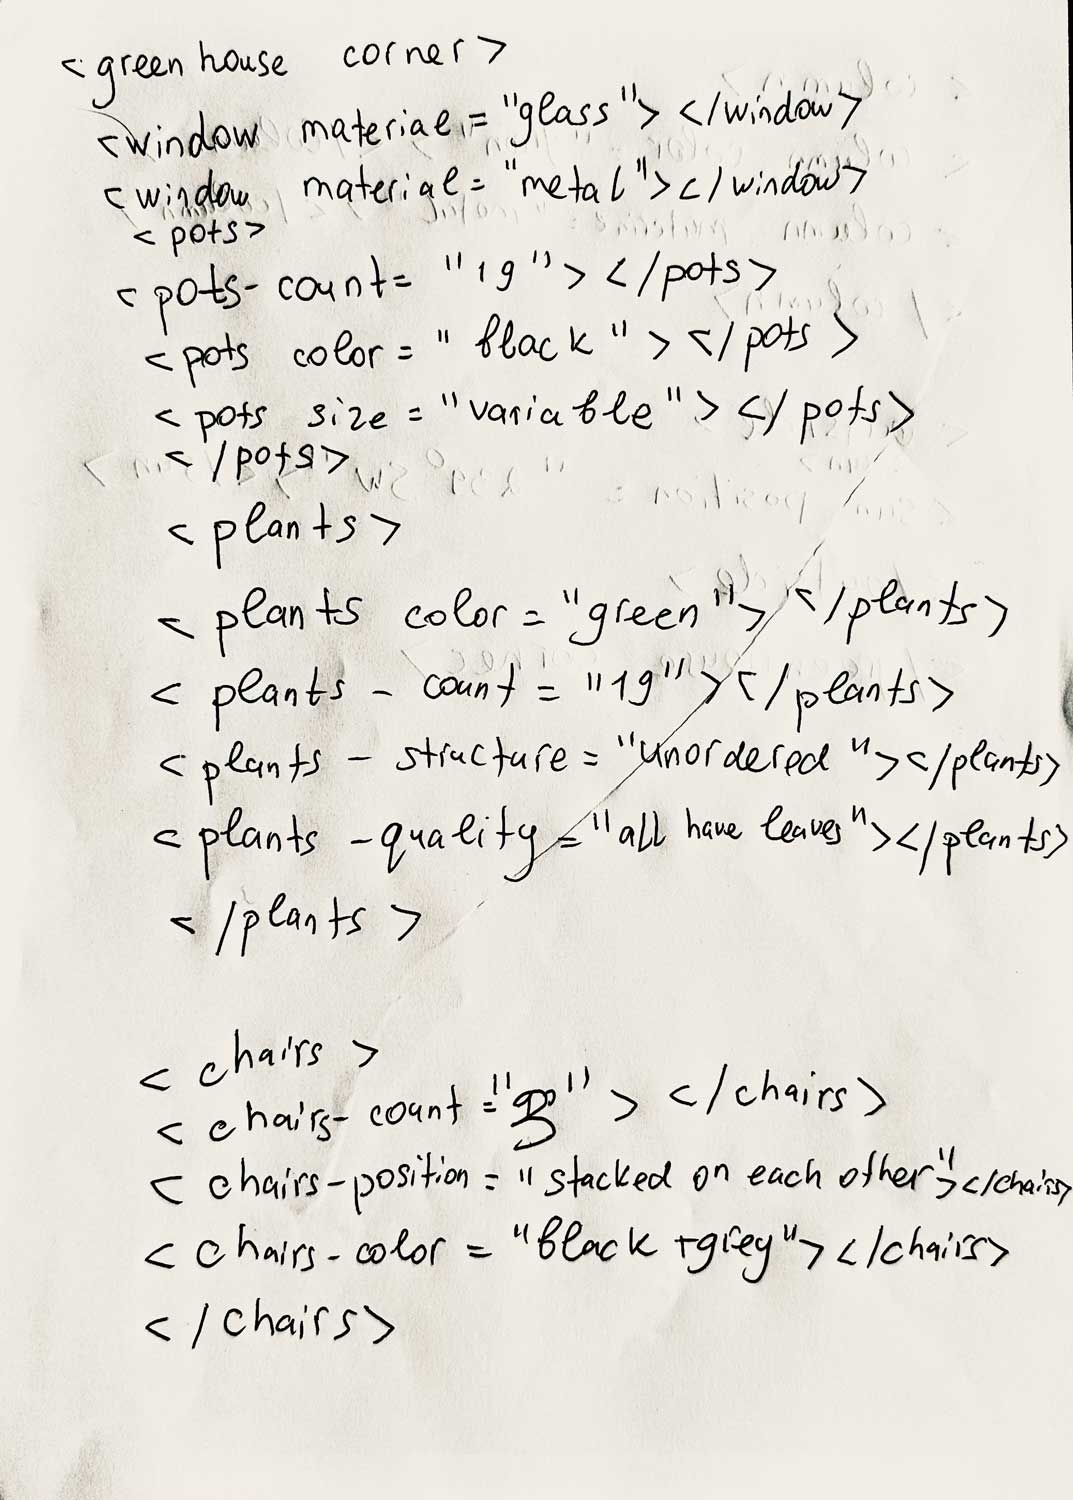 <green house corner>
<window material="glass"></window>
<window material="metal"></window>
<pots>
<pots-count="19"></pots>
<pots color="black"></pots>
<pots size="variable"></pots>
</pots>
<plants>
<plants color="green"></plants>
<plants-count="19"></plants>
<plants-structure="unordered"></plants>
<plants-quality="all have leaves"></plants>
</plants>
<chairs>
<chairs-count=" "></chairs>
<chairs-position="stacked on each other"></chairs>
<chairs-color="black+grey"></chairs>
</chairs>